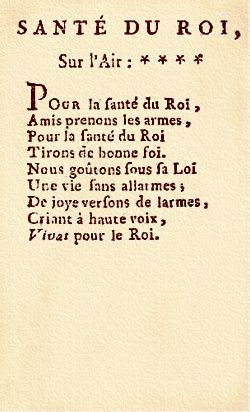 SANTÉ DU ROI,
Sur l'Air : * * * *
POUR la ſanté du Roi,
Amis prenons les armes,
Pour la ſanté du Roi
Tirons de bonne foi.
Nous goûtons ſous ſa Loi
Une vie ſans allarmes ;
De joye verſons de larmes,
Criant à haute voix,
Vivat pour le Roi.